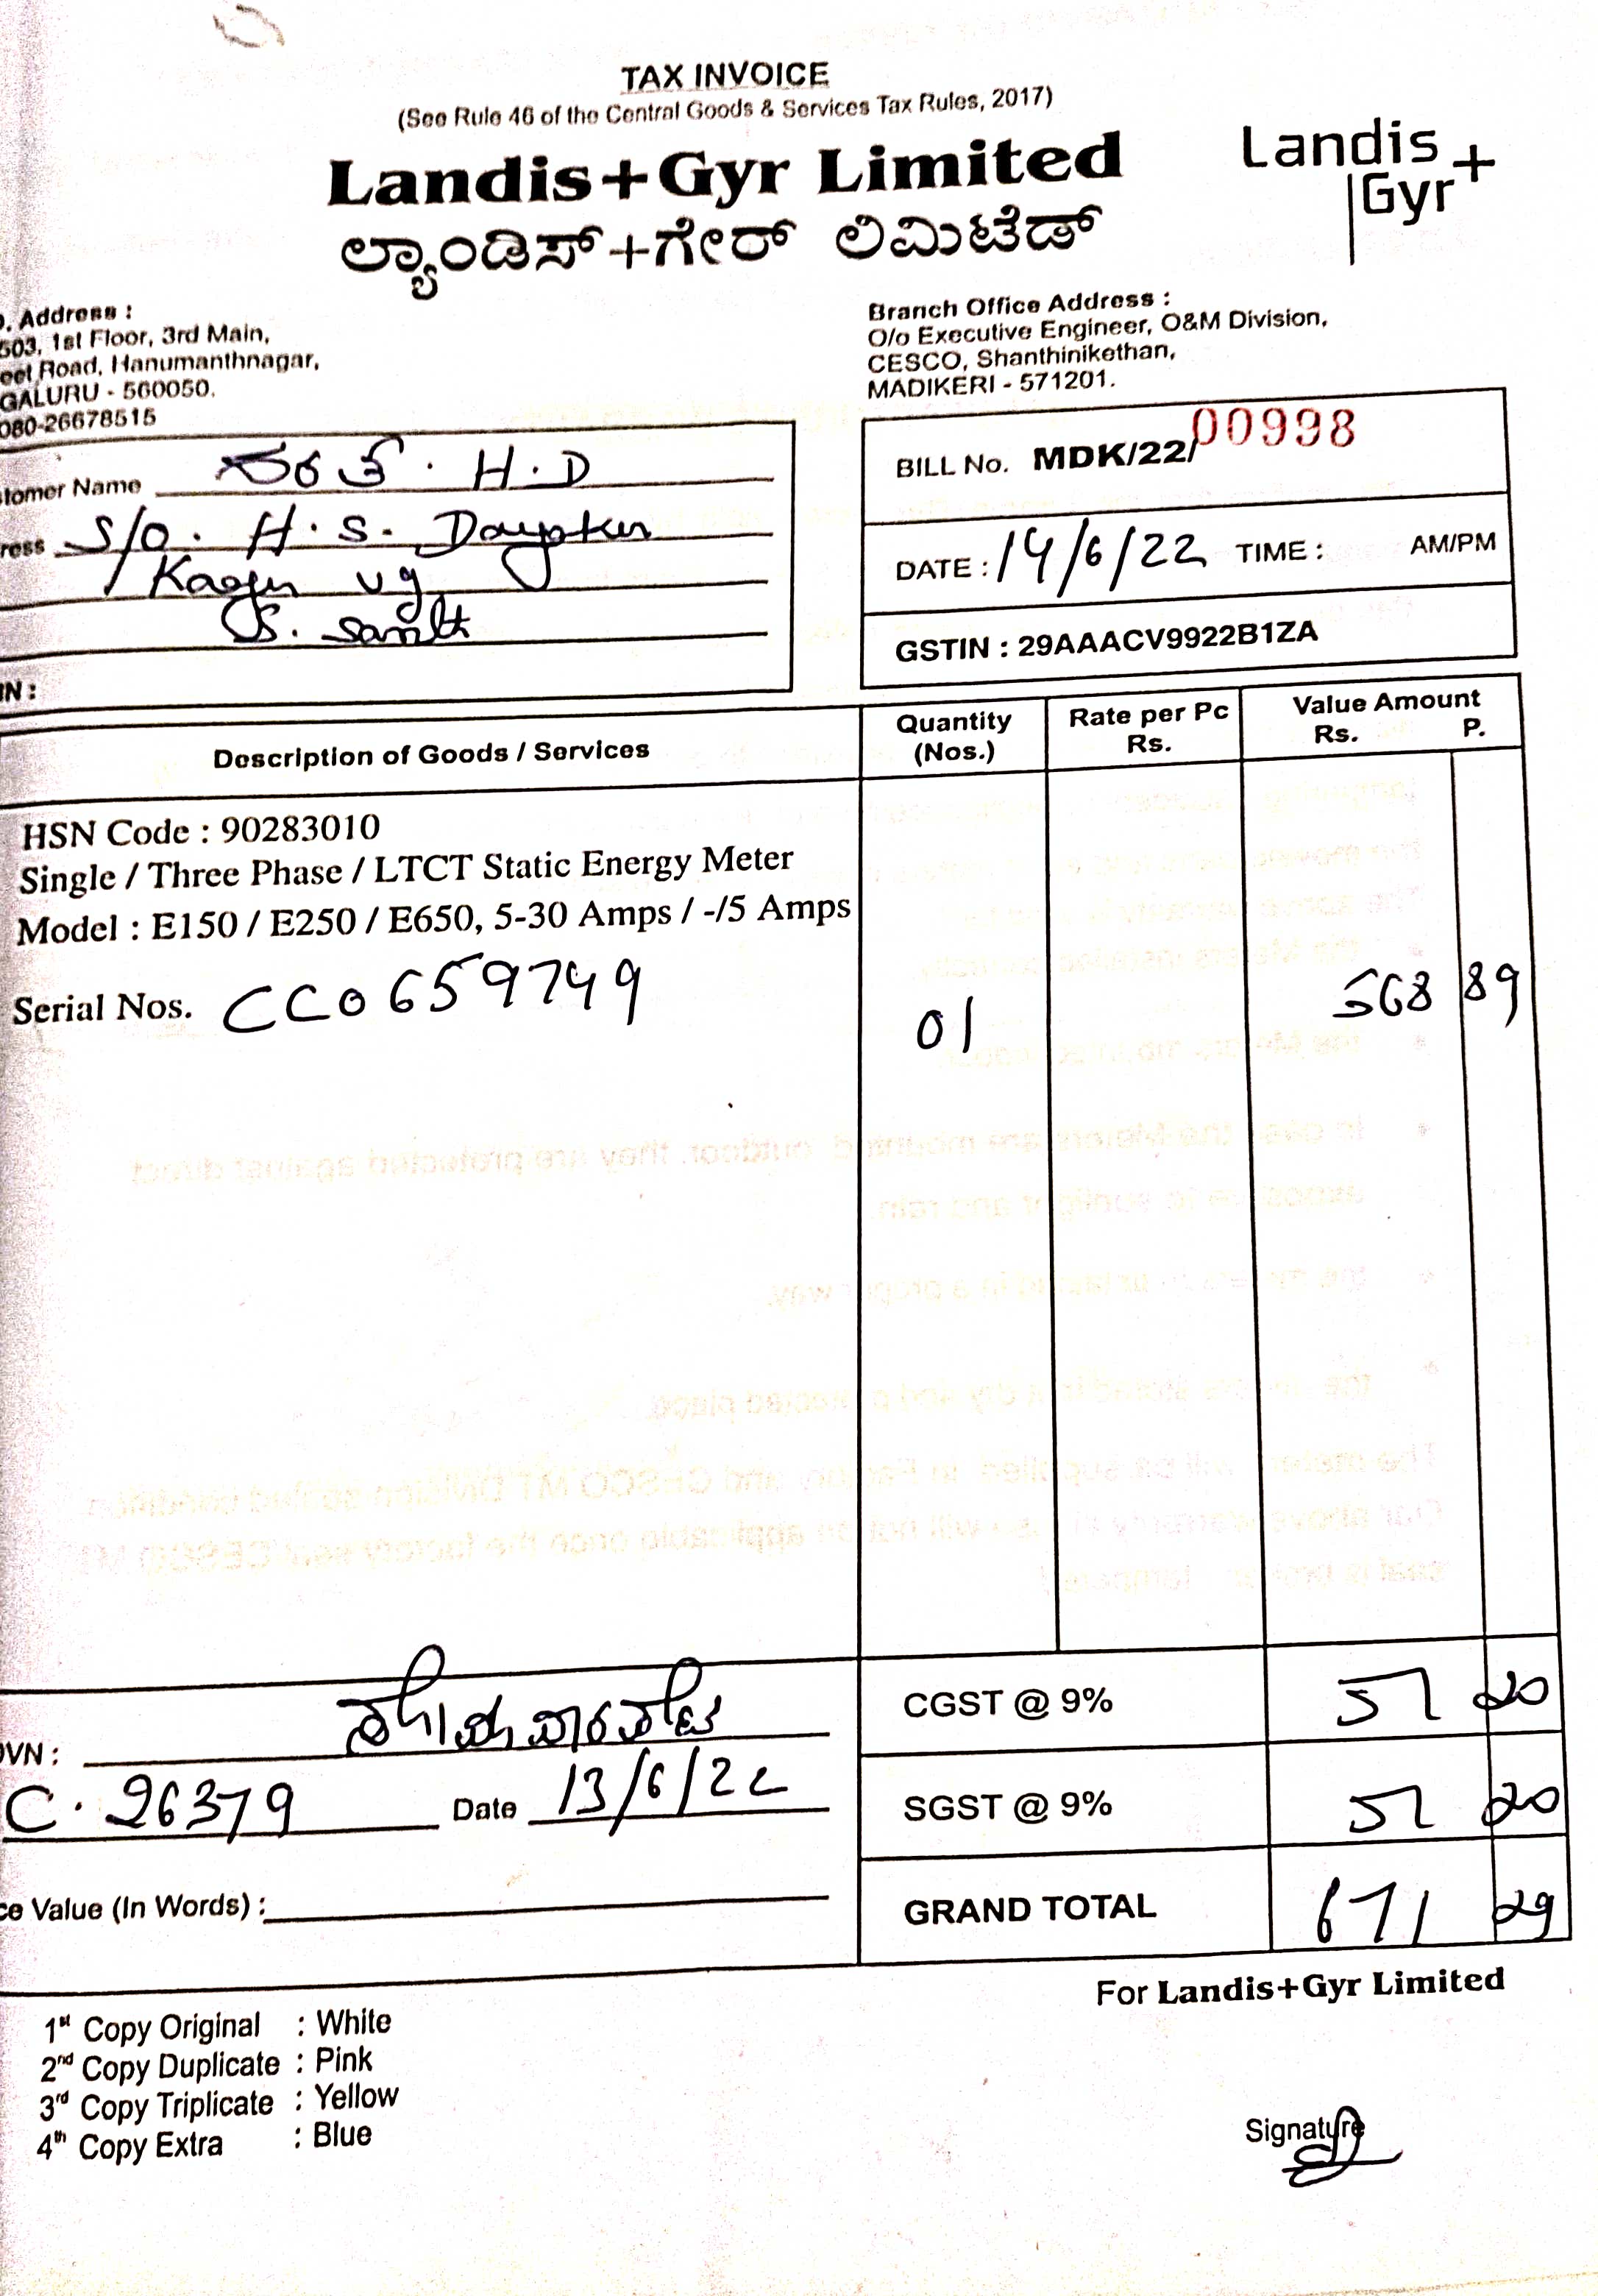 TAX INVOICE
(See Rule 46 of the Central Goods & Services Tax Rules, 2017)
Landis+Gyr Limited
ಲ್ಯಾಂಡಿಸ್+ಗೇರ್ ಲಿಮಿಟೆಡ್
Landis
Gyr+
. Address :
503, 1st Floor, 3rd Main,
Road, Hanumanthnagar,
GALURU - 560050.
080-26678515
Branch Office Address :
O/o Executive Engineer, O&M Division,
CESCO, Shanthinikethan,
MADIKERI - 571201.
tomer Name ಶರತ್ . H . D
ress S/O. H. S.
BILL No. MDK/22/ 00998
DATE : 14/6/22 TIME : AM/PM
GSTIN : 29AAACV9922B1ZA
IN :
Description of Goods / Services
Quantity
(Nos.)
Rate per Pc
Rs.
Value Amount
Rs. P.
HSN Code : 90283010
Single / Three Phase / LTCT Static Energy Meter
Model : E150 / E250 / E650, 5-30 Amps / -/5 Amps
Serial Nos. CC0659749 01 568 89
CGST @ 9% 51 20
VN :
C. 26379 Date 13/6/22
SGST @ 9% 51 20
ce Value (In Words) :
GRAND TOTAL 671 29
For Landis+Gyr Limited
1st Copy Original : White
2nd Copy Duplicate : Pink
3rd Copy Triplicate : Yellow
4th Copy Extra : Blue
Signature